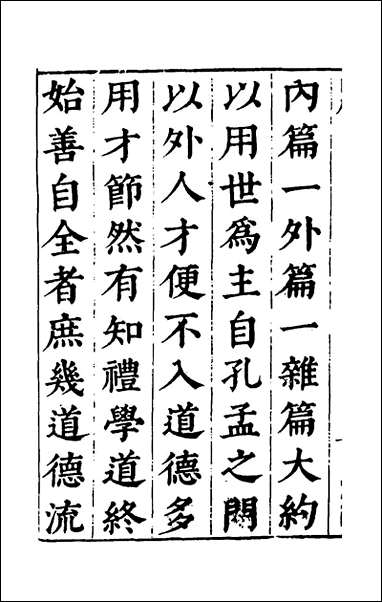 內篇一外篇一雜篇大約
以用世爲主自孔孟之門
以外人才便不入道德多
用才節然有知禮學道終
始善自全者庶幾道德流